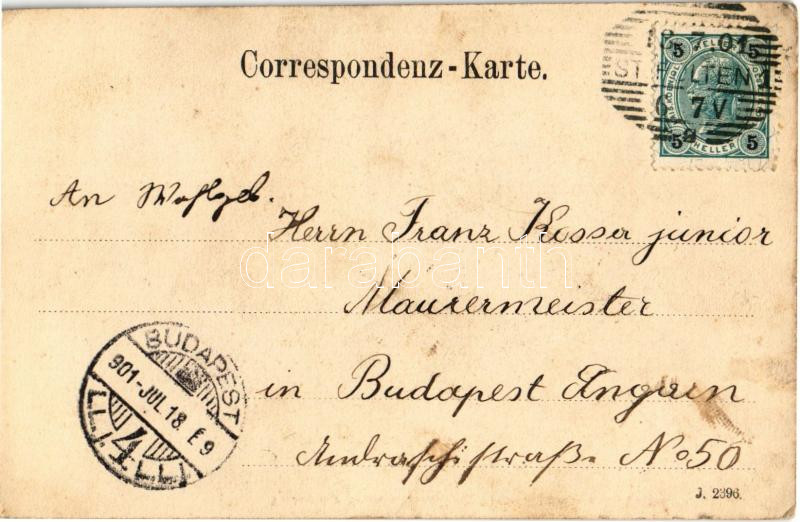 Correspondenz-Karte.
5 5
ST. PÖLTEN 1
7 V
HELLER
5 5
An Wohlgeb.
Herrn Franz Kossa junior
darabanth
Maurermeister
BUDAPEST
901-JUL.18 É9
4
in Budapest Ungarn
Andraschistraße No 50
J. 2396.